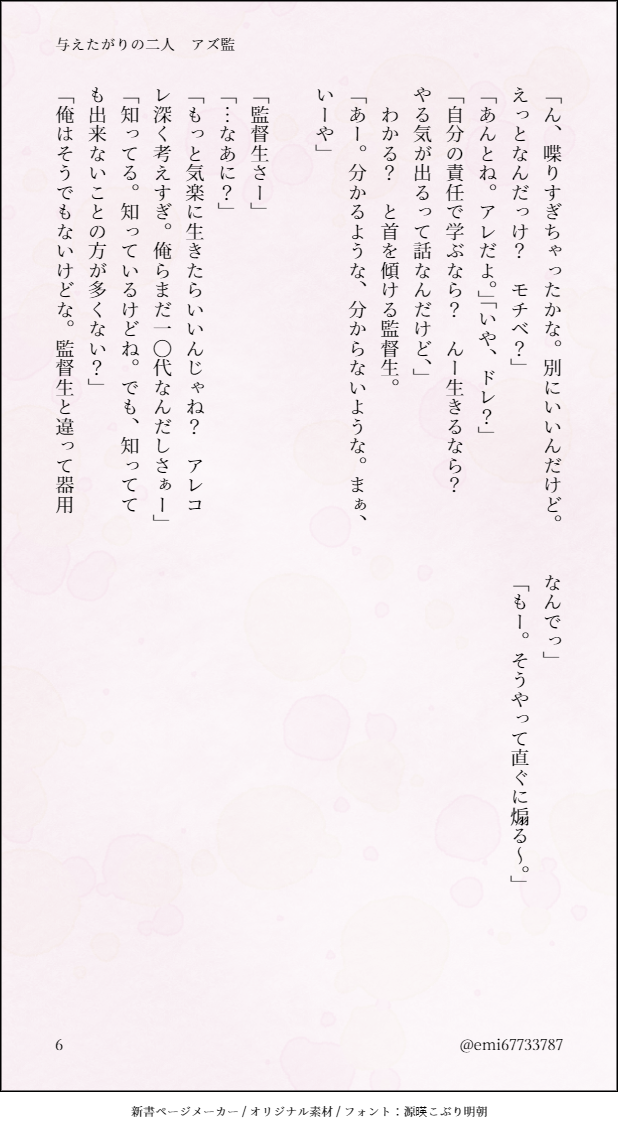 与えたがりの二人　アズ監
「ん、喋りすぎちゃったかな。別にいいんだけど。
えっとなんだっけ？　モチベ？」
「あんとね。アレだよ。」「いや、ドレ？」
「自分の責任で学ぶなら？　んー生きるなら？
やる気が出るって話なんだけど、」
　わかる？　と首を傾ける監督生。
「あー。分かるような、分からないような。まぁ、
いーや」
「監督生さー」
「…なあに？」
「もっと気楽に生きたらいいんじゃね？　アレコ
レ深く考えすぎ。俺らまだ一〇代なんだしさぁー」
「知ってる。知っているけどね。でも、知ってて
も出来ないことの方が多くない？」
「俺はそうでもないけどな。監督生と違って器用
なんでっ」
「もー。そうやって直ぐに煽る〜。」
6
@emi67733787
新書ページメーカー / オリジナル素材 / フォント：源暎こぶり明朝